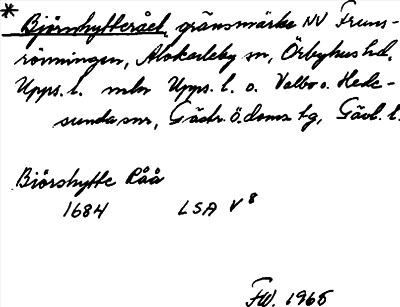 * Björnhytteråel, gränsmärke NV Fruns-
rönningen, Älvkarleby sn, Örbyhus hd,
Upps. l. mln Upps. l. o. Valbo o. Hede-
sunda snr, Gästr. Ö. doms tg, Gävl. l.
Biörshytte Råå
1684 LSA V 8
FW. 1965